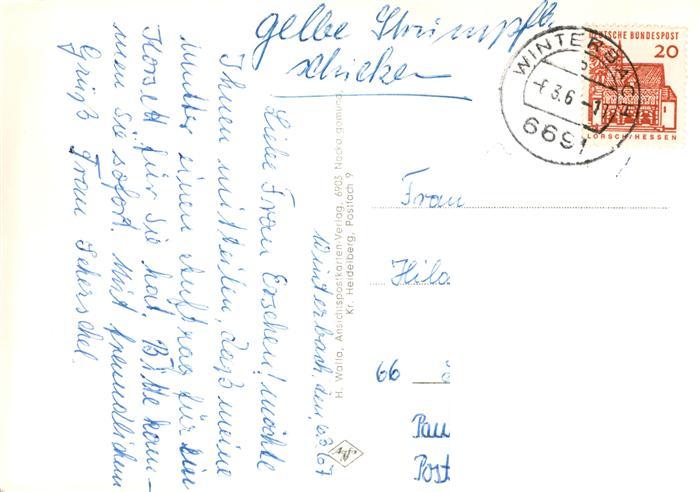 gelbe Strümpfle
schicken
Winterbach, den, 6.3.67
Liebe Frau Erschen! möchte
Ihnen mitteilen, daß meine
Mutter einen Auftrag für ein
Korsett für Sie hat. Bitte kom-
men Sie sofort. Mit freundlichem
Gruß Frau Scherschel.
H. Walla, Ansichtspostkarten-Verlag, 6903 Neckargemünd,
Kr. Heidelberg, Postfach 9
DEUTSCHE BUNDESPOST
20
LORSCH/HESSEN
WINTERBACH
-6.3.6
6691
Frau
Hild
66
Pau
Post